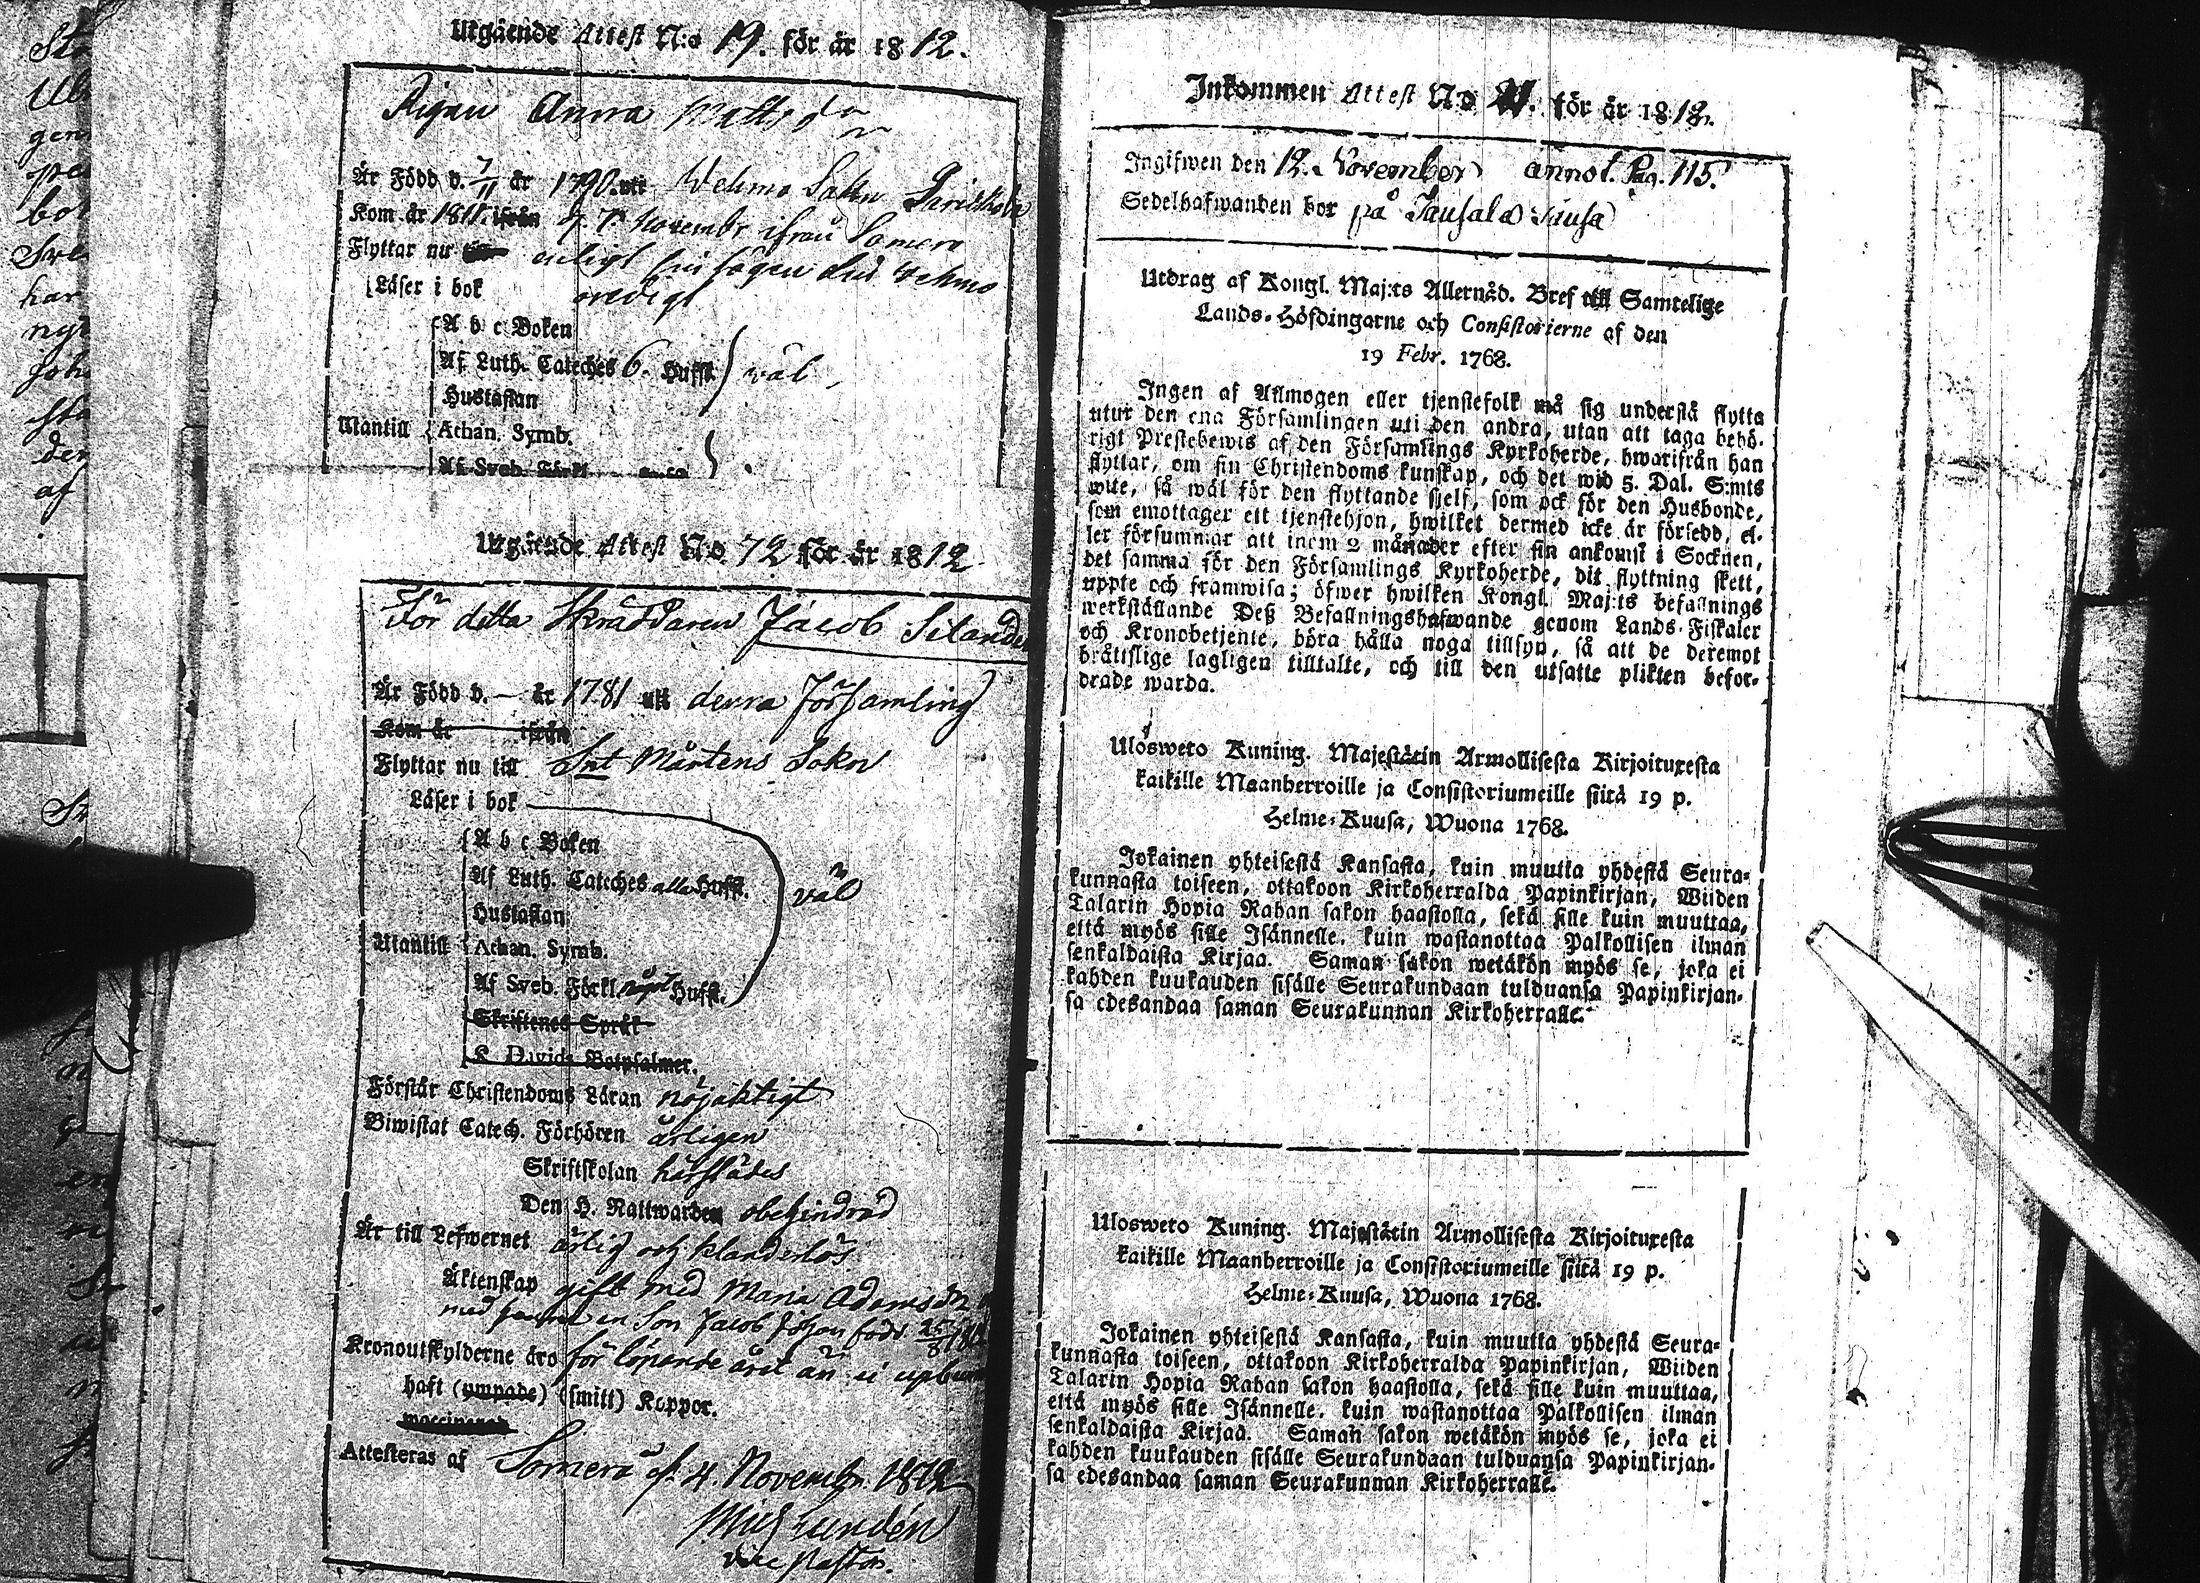 Utgående Attest N:o 19. för år 1812.
Pigan Anna Mattsdr
Är Född d. 7/11 år 1790. uti Vehmo Sokn
Kom år 1811. ifrån d. 7. Novembr ifrån Somero
Flyttar nu enligt till Vehmo
Läser i bok ovedigt
A b c Boken
Af Luth. Cateches 6. Hufst. väl
Hustaflan
Utantill Athan. Symb.
Af Sveb. Förkl.
Utgående Attest N:o 72 för år 1812
För detta Skräddaren Jacob Selander
Är Född d. — år 1781 uti denna Församling
Kom år ifrån
Flyttar nu till Snt Mårtens Sokn
Läser i bok
A b c Boken
Af Luth. Cateches alla Hufst. väl
Hustaflan
Utantill Athan. Symb.
Af Sveb. Förkl. något Hufst.
Skriftenes Språk
K Davids Botpsalmer.
Förstår Christendoms Läran nöjaktigt
Biwistat Catech. Förhören årligen
Skriftskolan härstädes
Den H. Nattwarden obehindrad
Är till Lefwernet ärlig och klanderlös
Äktenskap gift med Maria Adamsdr
med en Son Jacob Johan född. 25/8
Kronoutskylderne äro för löpande året än ei
haft (ympade) (smitt) Koppor.
waccinerad
Attesteras af Somero d. 4. Novembr. 1812
Mich Lundén
vice Pastor.
Inkommen Attest N:o 21. för år 1812.
Ingifwen den 12. November annot. Pag. 115.
Sedelhafwanden bor på Jausala Jausa
Utdrag af Kongl. Maj:ts Allernåd. Bref till Samtelige
Lands-Höfdingarne och Consistorierne af den
19 Febr. 1768.
Ingen af Allmogen eller tjenstefolk må sig understå flytta
utur den ena Församlingen uti den andra, utan att taga behö-
rigt Prestebewis af den Församlings Kyrkoherde, hwarifrån han
flyttar, om sin Christendoms kunskap, och det wid 5. Dal. S:mts
wite, så wäl för den flyttande sjelf, som ock för den Husbonde,
som emottager ett tjenstehjon, hwilket dermed icke är försedd, el-
ler försummar att inom 2 månader efter sin ankomst i Socknen,
det samma för den Församlings Kyrkoherde, dit flyttning skett,
uppte och framwisa; öfwer hwilken Kongl. Maj:ts befallnings
werkställande Deß Befallningshafwande genom Lands-Fiskaler
och Kronobetjente, böra hålla noga tillsyn, så att de deremot
bråttslige lagligen tilltalte, och till den utsatte plikten befor-
drade warda.
Ulosweto Kuning. Majestätin Armollisesta Kirjoituxesta
kaikille Maanherroille ja Consistoriumeille siitä 19 p.
Helme-Kuusa, Wuona 1768.
Jokainen yhteisestä Kansasta, kuin muutta yhdestä Seura-
kunnasta toiseen, ottakoon Kirkoherralda Papinkirjan, Wiiden
Talarin Hopia Rahan sakon haastolla, sekä sille kuin muuttaa,
että myös sille Isännelle. kuin wastanottaa Palkollisen ilman
senkaldaista Kirjaa. Saman sakon wetäkön myös se, joka ei
kahden kuukauden sisälle Seurakundaan tulduansa Papinkirjan-
sa edesandaa saman Seurakunnan Kirkoherralle.
Ulosweto Kuning. Majestätin Armollisesta Kirjoituxesta
kaikille Maanherroille ja Consistoriumeille siitä 19 p.
Helme-Kuusa, Wuona 1768.
Jokainen yhteisestä Kansasta, kuin muutta yhdestä Seura-
kunnasta toiseen, ottakoon Kirkoherralda Papinkirjan, Wiiden
Talarin Hopia Rahan sakon haastolla, sekä sille kuin muuttaa,
että myös sille Isännelle. kuin wastanottaa Palkollisen ilman
senkaldaista Kirjaa. Saman sakon wetäkön myös se, joka ei
kahden kuukauden sisälle Seurakundaan tulduansa Papinkirjan-
sa edesandaa saman Seurakunnan Kirkoherralle.